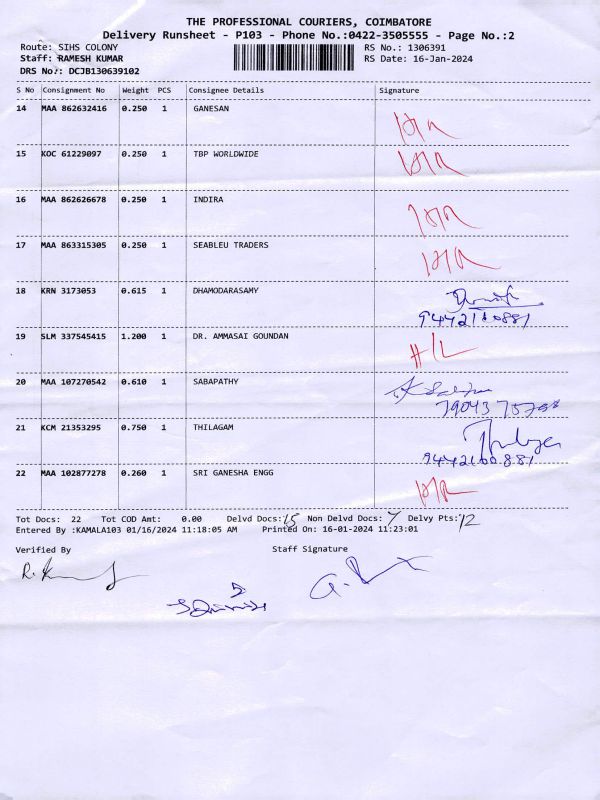 THE PROFESSIONAL COURIERS, COIMBATORE
Delivery Runsheet - P103 - Phone No.:0422-3505555 - Page No.:2
Route: SIHS COLONY RS No.: 1306391
Staff: RAMESH KUMAR RS Date: 16-Jan-2024
DRS No.: DCJB130639102
S No Consignment No Weight PCS Consignee Details Signature
14 MAA 862632416 0.250 1 GANESAN
15 KOC 61229097 0.250 1 TBP WORLDWIDE
16 MAA 862626678 0.250 1 INDIRA
17 MAA 863315305 0.250 1 SEABLEU TRADERS
18 KRN 3173053 0.615 1 DHAMODARASAMY
9442160881
19 SLM 337545415 1.200 1 DR. AMMASAI GOUNDAN H/L
20 MAA 107270542 0.610 1 SABAPATHY
21 KCM 21353295 0.750 1 THILAGAM
9442160881
22 MAA 102877278 0.260 1 SRI GANESHA ENGG
Tot Docs: 22 Tot COD Amt: 0.00 Delvd Docs: 15 Non Delvd Docs: 7 Delvy Pts: 12
Entered By :KAMALA103 01/16/2024 11:18:05 AM Printed On: 16-01-2024 11:23:01
Verified By Staff Signature